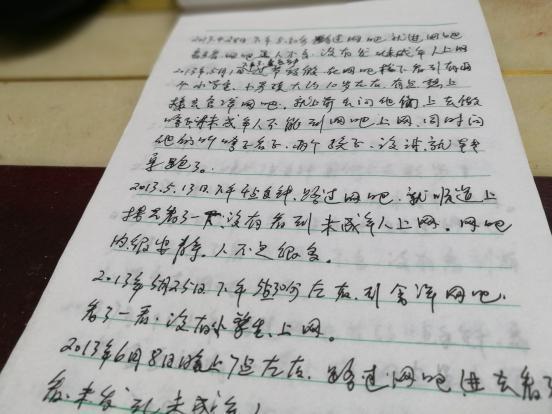 2013.4.28日下午5.30分路过网吧就进网吧
看看网吧里人不多,没有发现未成年人上网
2013年5月1日 节放假 在网吧楼下看到有两
个小学生,小男孩大约10岁左右,有点想上
楼去官洋网吧,就上前去问他俩上去做
啥子?未成年人不能到网吧上网,同时问
他的 两个孩子,没讲就
跑了。
2013.5.13日下午4点钟,路过网吧,就顺道上
楼去看了一下,没有看到未成年人上网。网吧
内很安静。人不是很多。
2013年5月25日下午5点30分左右,到官洋网吧,
看了一看,没有小学生上网。
2013年6月8日晚上7点左右,路过网吧进去看了
看,未发现未成年人